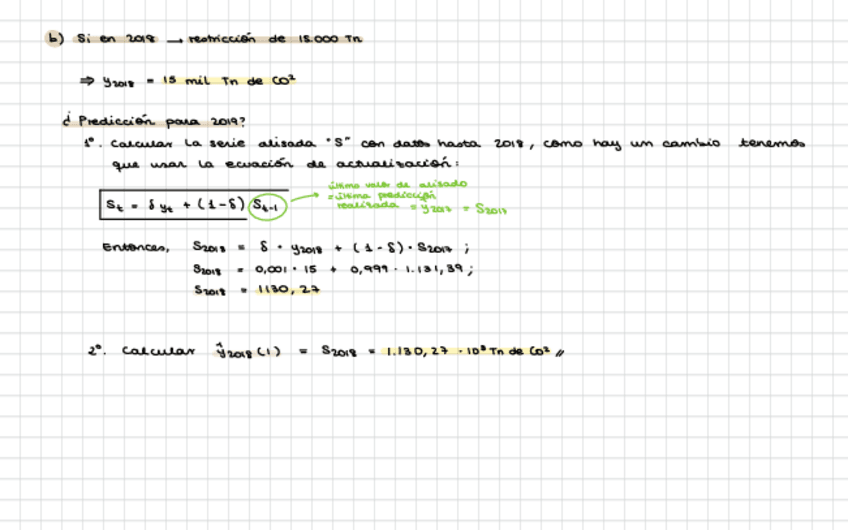 b) Si en 2018 → restricción de 15.000 Tn
⇒ y2018 = 15 mil Tn de CO²
¿Predicción para 2019?
1º. Calcular la serie alisada "S" con datos hasta 2018, como hay un cambio tenemos
que usar la ecuación de actualización:
St = δ yt + (1-δ) St-1
último valor de alisado
= última predicción
realizada = y2017 = S2017
Entonces, S2018 = δ · y2018 + (1-δ) · S2017 ;
S2018 = 0,001 · 15 + 0,999 · 1.131,39 ;
S2018 = 1130,27
2º. Calcular ŷ2018(1) = S2018 = 1.130,27 · 10³ Tn de CO² //